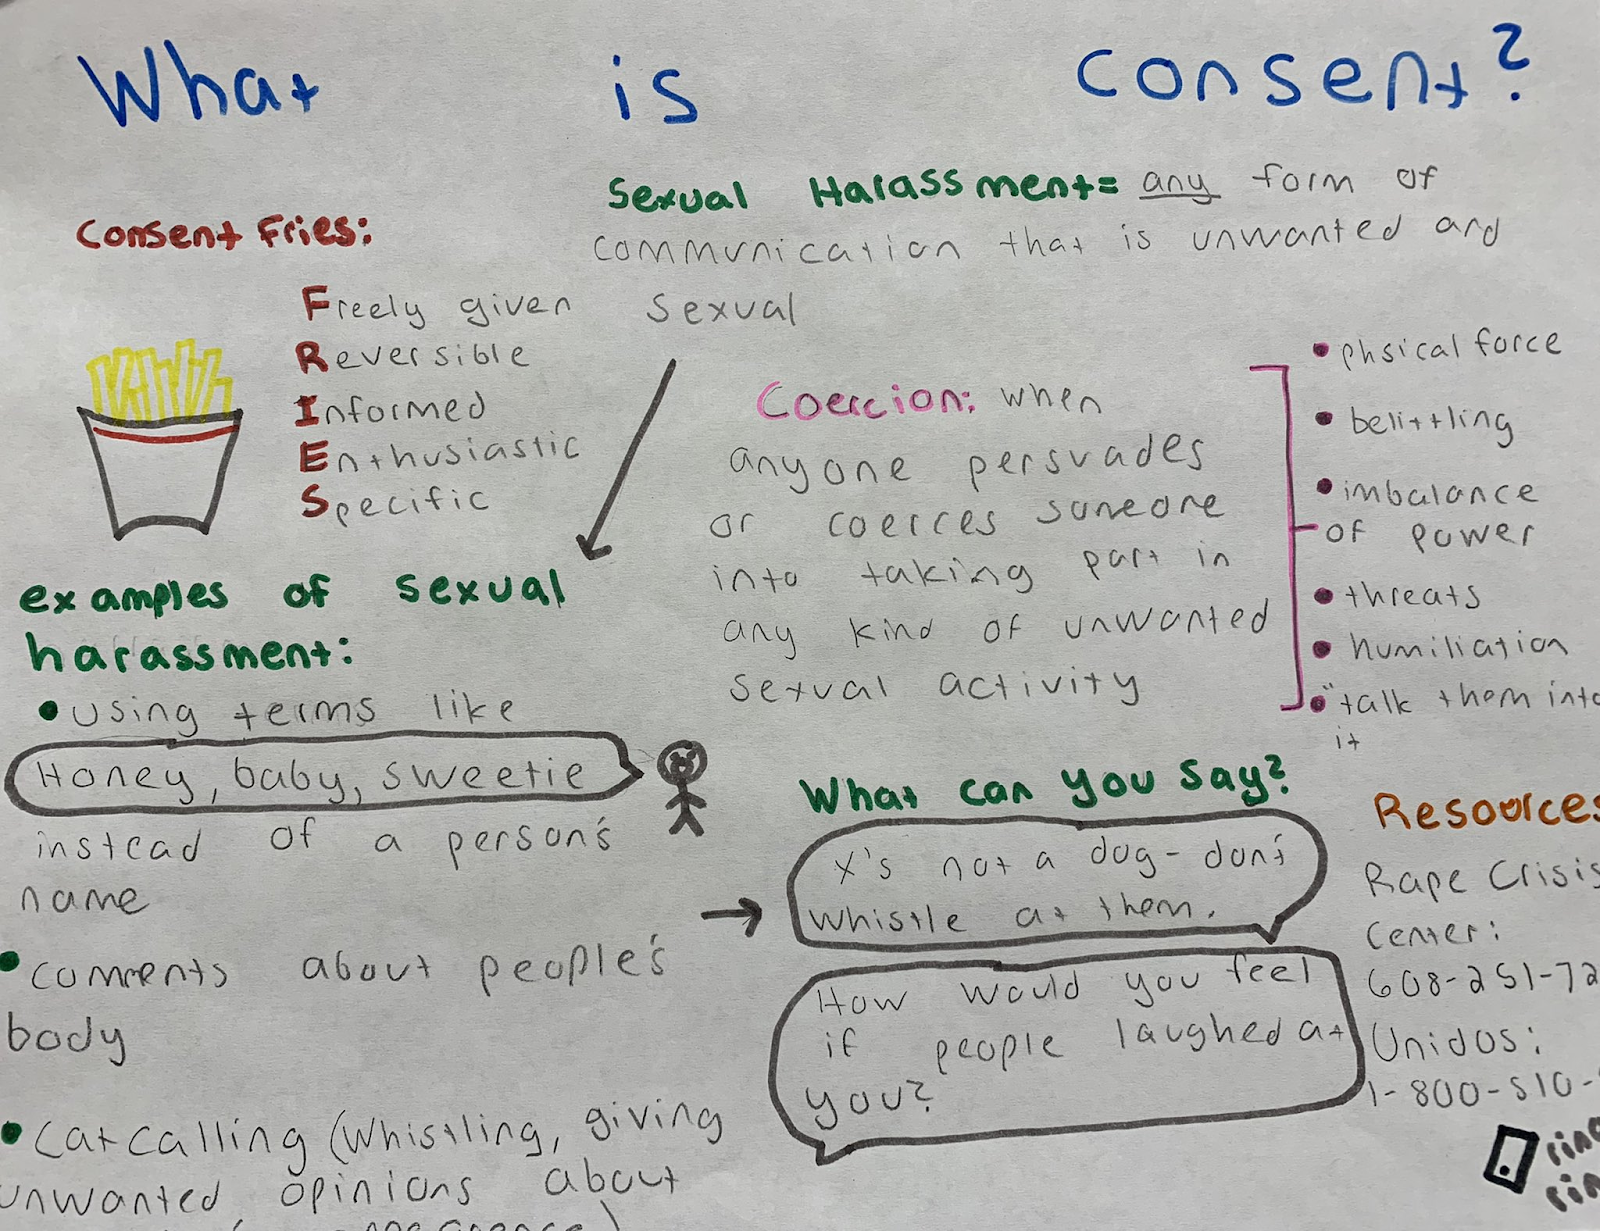 What is consent?
Consent Fries:
Freely given
Reversible
Informed
Enthusiastic
Specific
Sexual Harassment = any form of
communication that is unwanted and
sexual
Coercion: when
anyone persuades
or coerces someone
into taking part in
any kind of unwanted
sexual activity
• phsical force
• belittling
• imbalance
of power
• threats
• humiliation
• "talk them into
it
examples of sexual
harassment:
• using terms like
Honey, baby, sweetie
instead of a person's
name
• comments about people's
body
• Catcalling (whistling, giving
unwanted opinions about
What can you say?
X's not a dog - don't
whistle at them.
How would you feel
if people laughed at
you?
Resources
Rape Crisis
Center:
608-251-72
Unidos:
1-800-510-